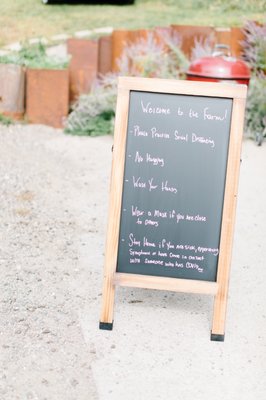 Welcome to the Farm!
- Please Practice Social Distancing
- No Hugging
- Wash Your Hands
- Wear a Mask if you are close
to others
- Stay Home if you are sick, experiencing
symptoms or have come in contact
with someone who has COVID-19